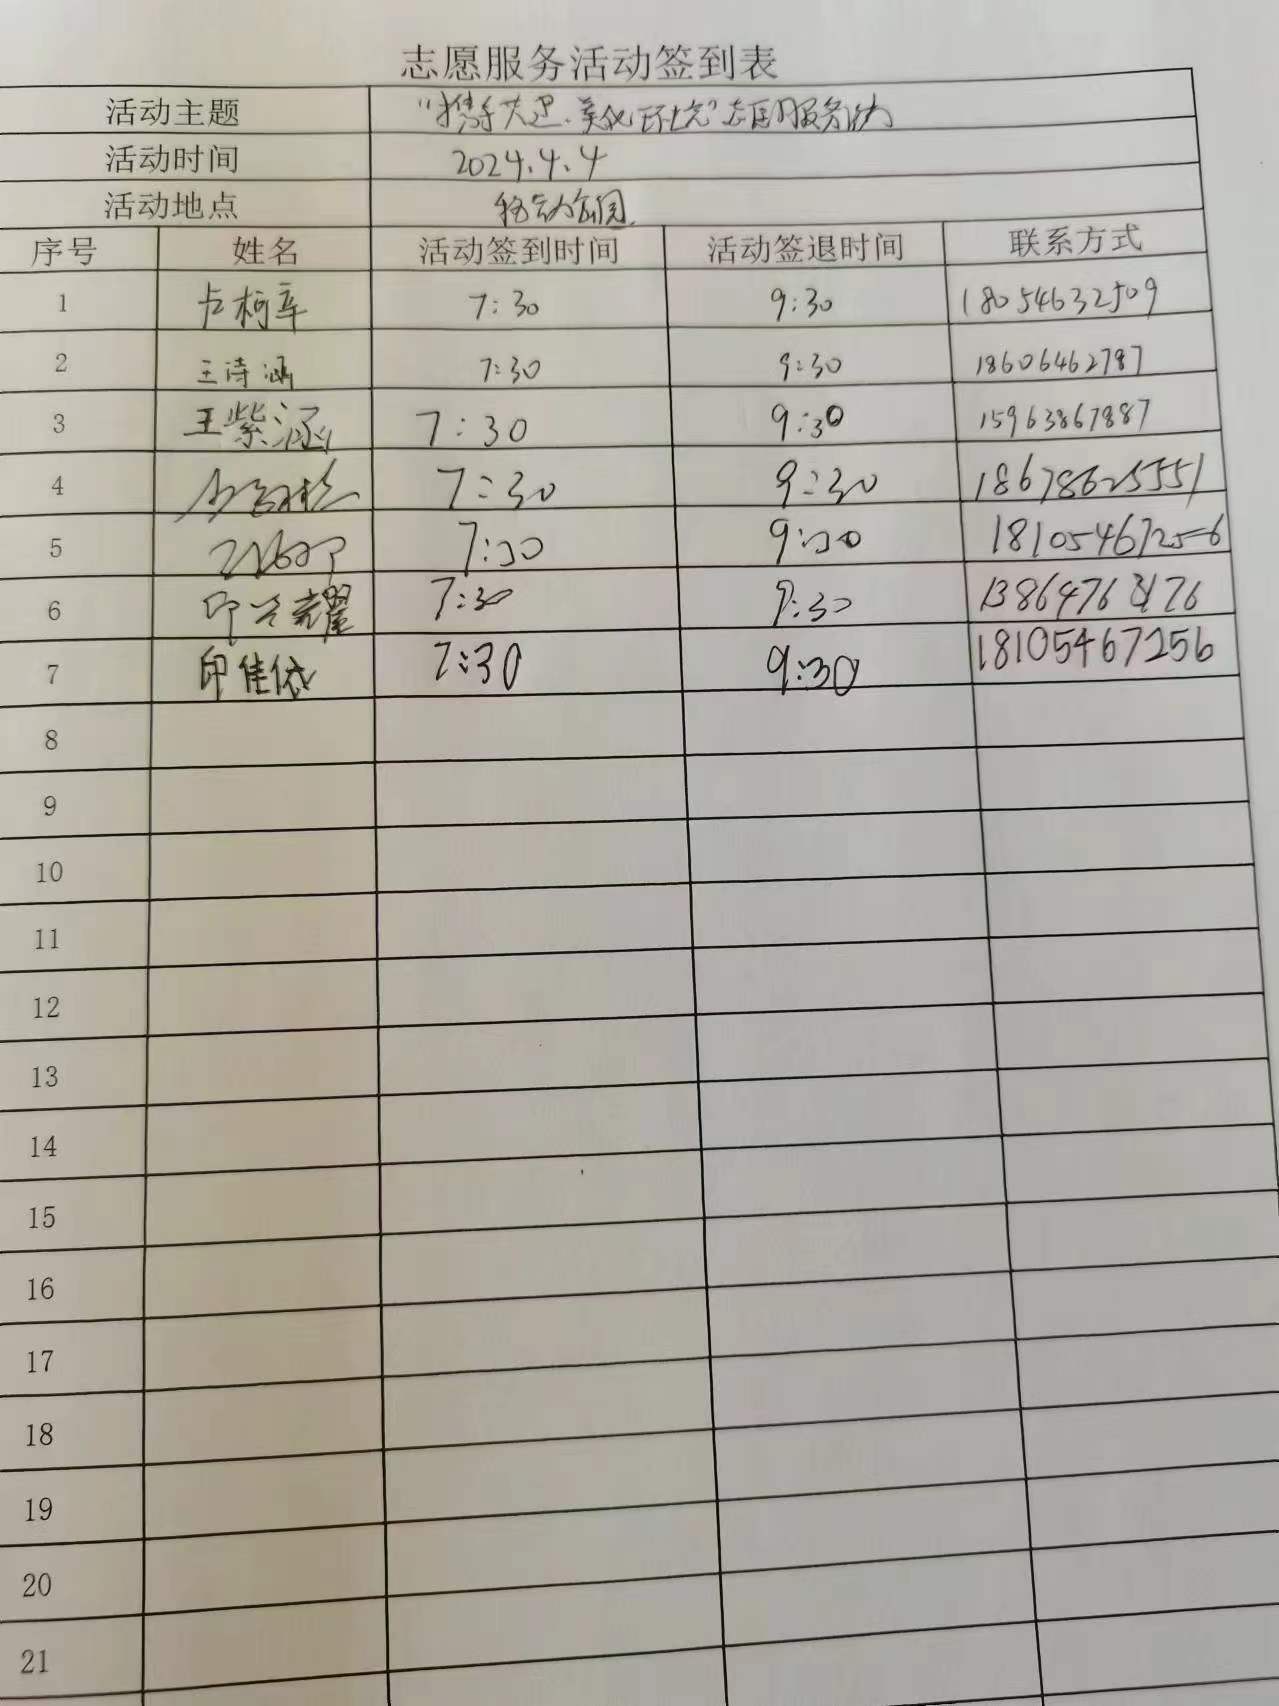 志愿服务活动签到表
活动主题 "携手共建、美化环境"志愿服务活动
活动时间 2024.4.4
活动地点
序号 姓名 活动签到时间 活动签退时间 联系方式
1 卢柯辛 7:30 9:30 18054632509
2 王诗涵 7:30 9:30 18606462787
3 王紫涵 7:30 9:30 15963867887
4 7:30 9:30 18678625551
5 7:30 9:30 18105467256
6 7:30 9:30
7 印佳依 7:30 9:30 18105467256
8
9
10
11
12
13
14
15
16
17
18
19
20
21